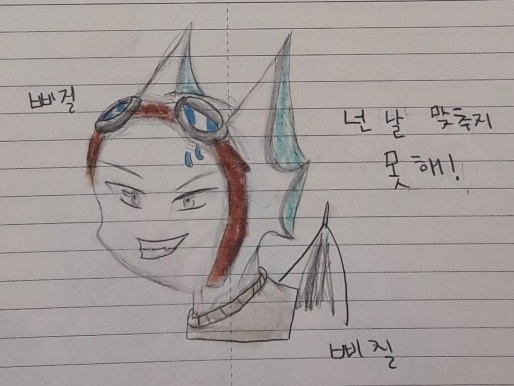 삐질
넌 날 맞추지
못해!
삐질